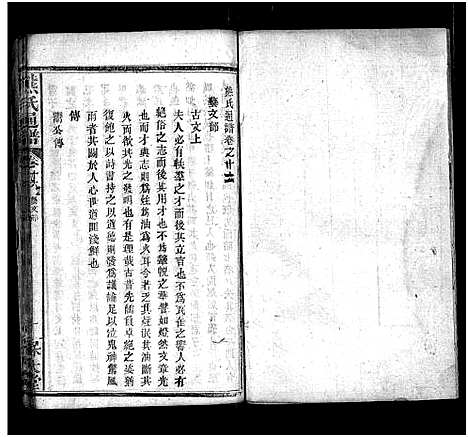 熊氏通譜卷之廿二
藝文部
古文上
夫人必有軼羣之才而後其立言也不爲瓦缶之響人必有
絕俗之志而後其用才也不爲鞶帨之華譬如燈然文章光
也才與志則爲炷爲油爲火耳今者乏其炷涸其油斷其
火而求其光之發明也有是理哉古昔先儒負卓絕之才而
復飽之以實持之以道德則發爲議論足以泣鬼神驚風
雨者其關於人心世道固淺鮮也
傳
公傳
熊氏通譜
卷
藝文部
一
堂